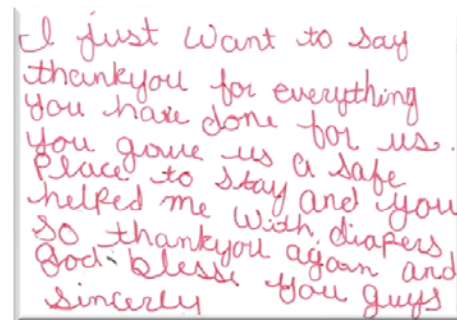 I just want to say
thankyou for everything
you have done for us.
You gave us a safe
Place to stay and you
helped me with diapers
so thankyou again and
God bless you guys
sincerly